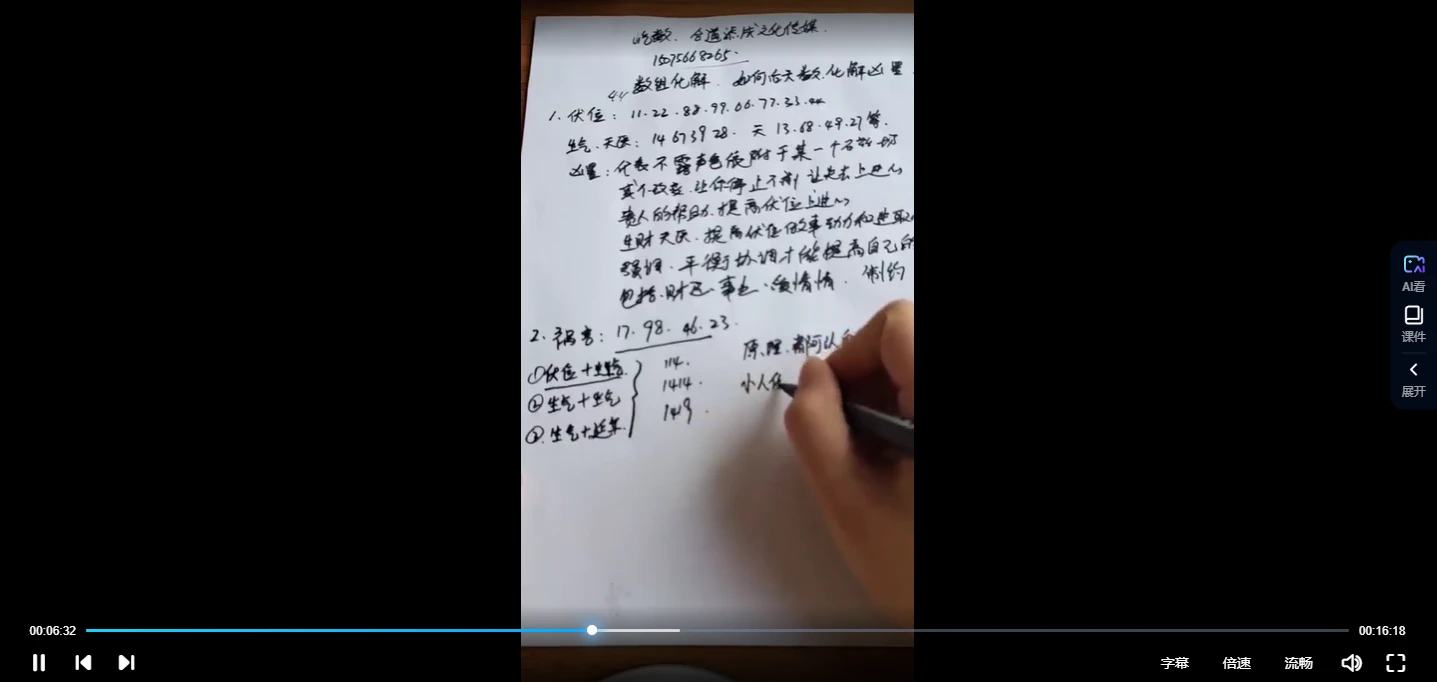 数. 合道 文化传媒.
15075668265.
数组化解. 如何 化解凶星
44
1. 伏位: 11.22.88.99.66.77.33.44
生气.天医: 14 67 39 28. 天 13.68.49.27等.
凶星: 代表不露声色 附于某一个
不改变.让你停止不 让 上进心
贵人的帮助.提高伏位上进心
生财天医.提高伏位做事动力和进取
强调.平衡协调才能提高自己的
包括.财运.事业.爱情情. 制约
2. 祸害: 17.98.46.23.
原理.都可以
①伏位+生气. 114.
小人
②生气+生气 1414.
③.生气+延年. 1419.
AI看
课件
展开
00:06:32
00:16:18
字幕 倍速 流畅